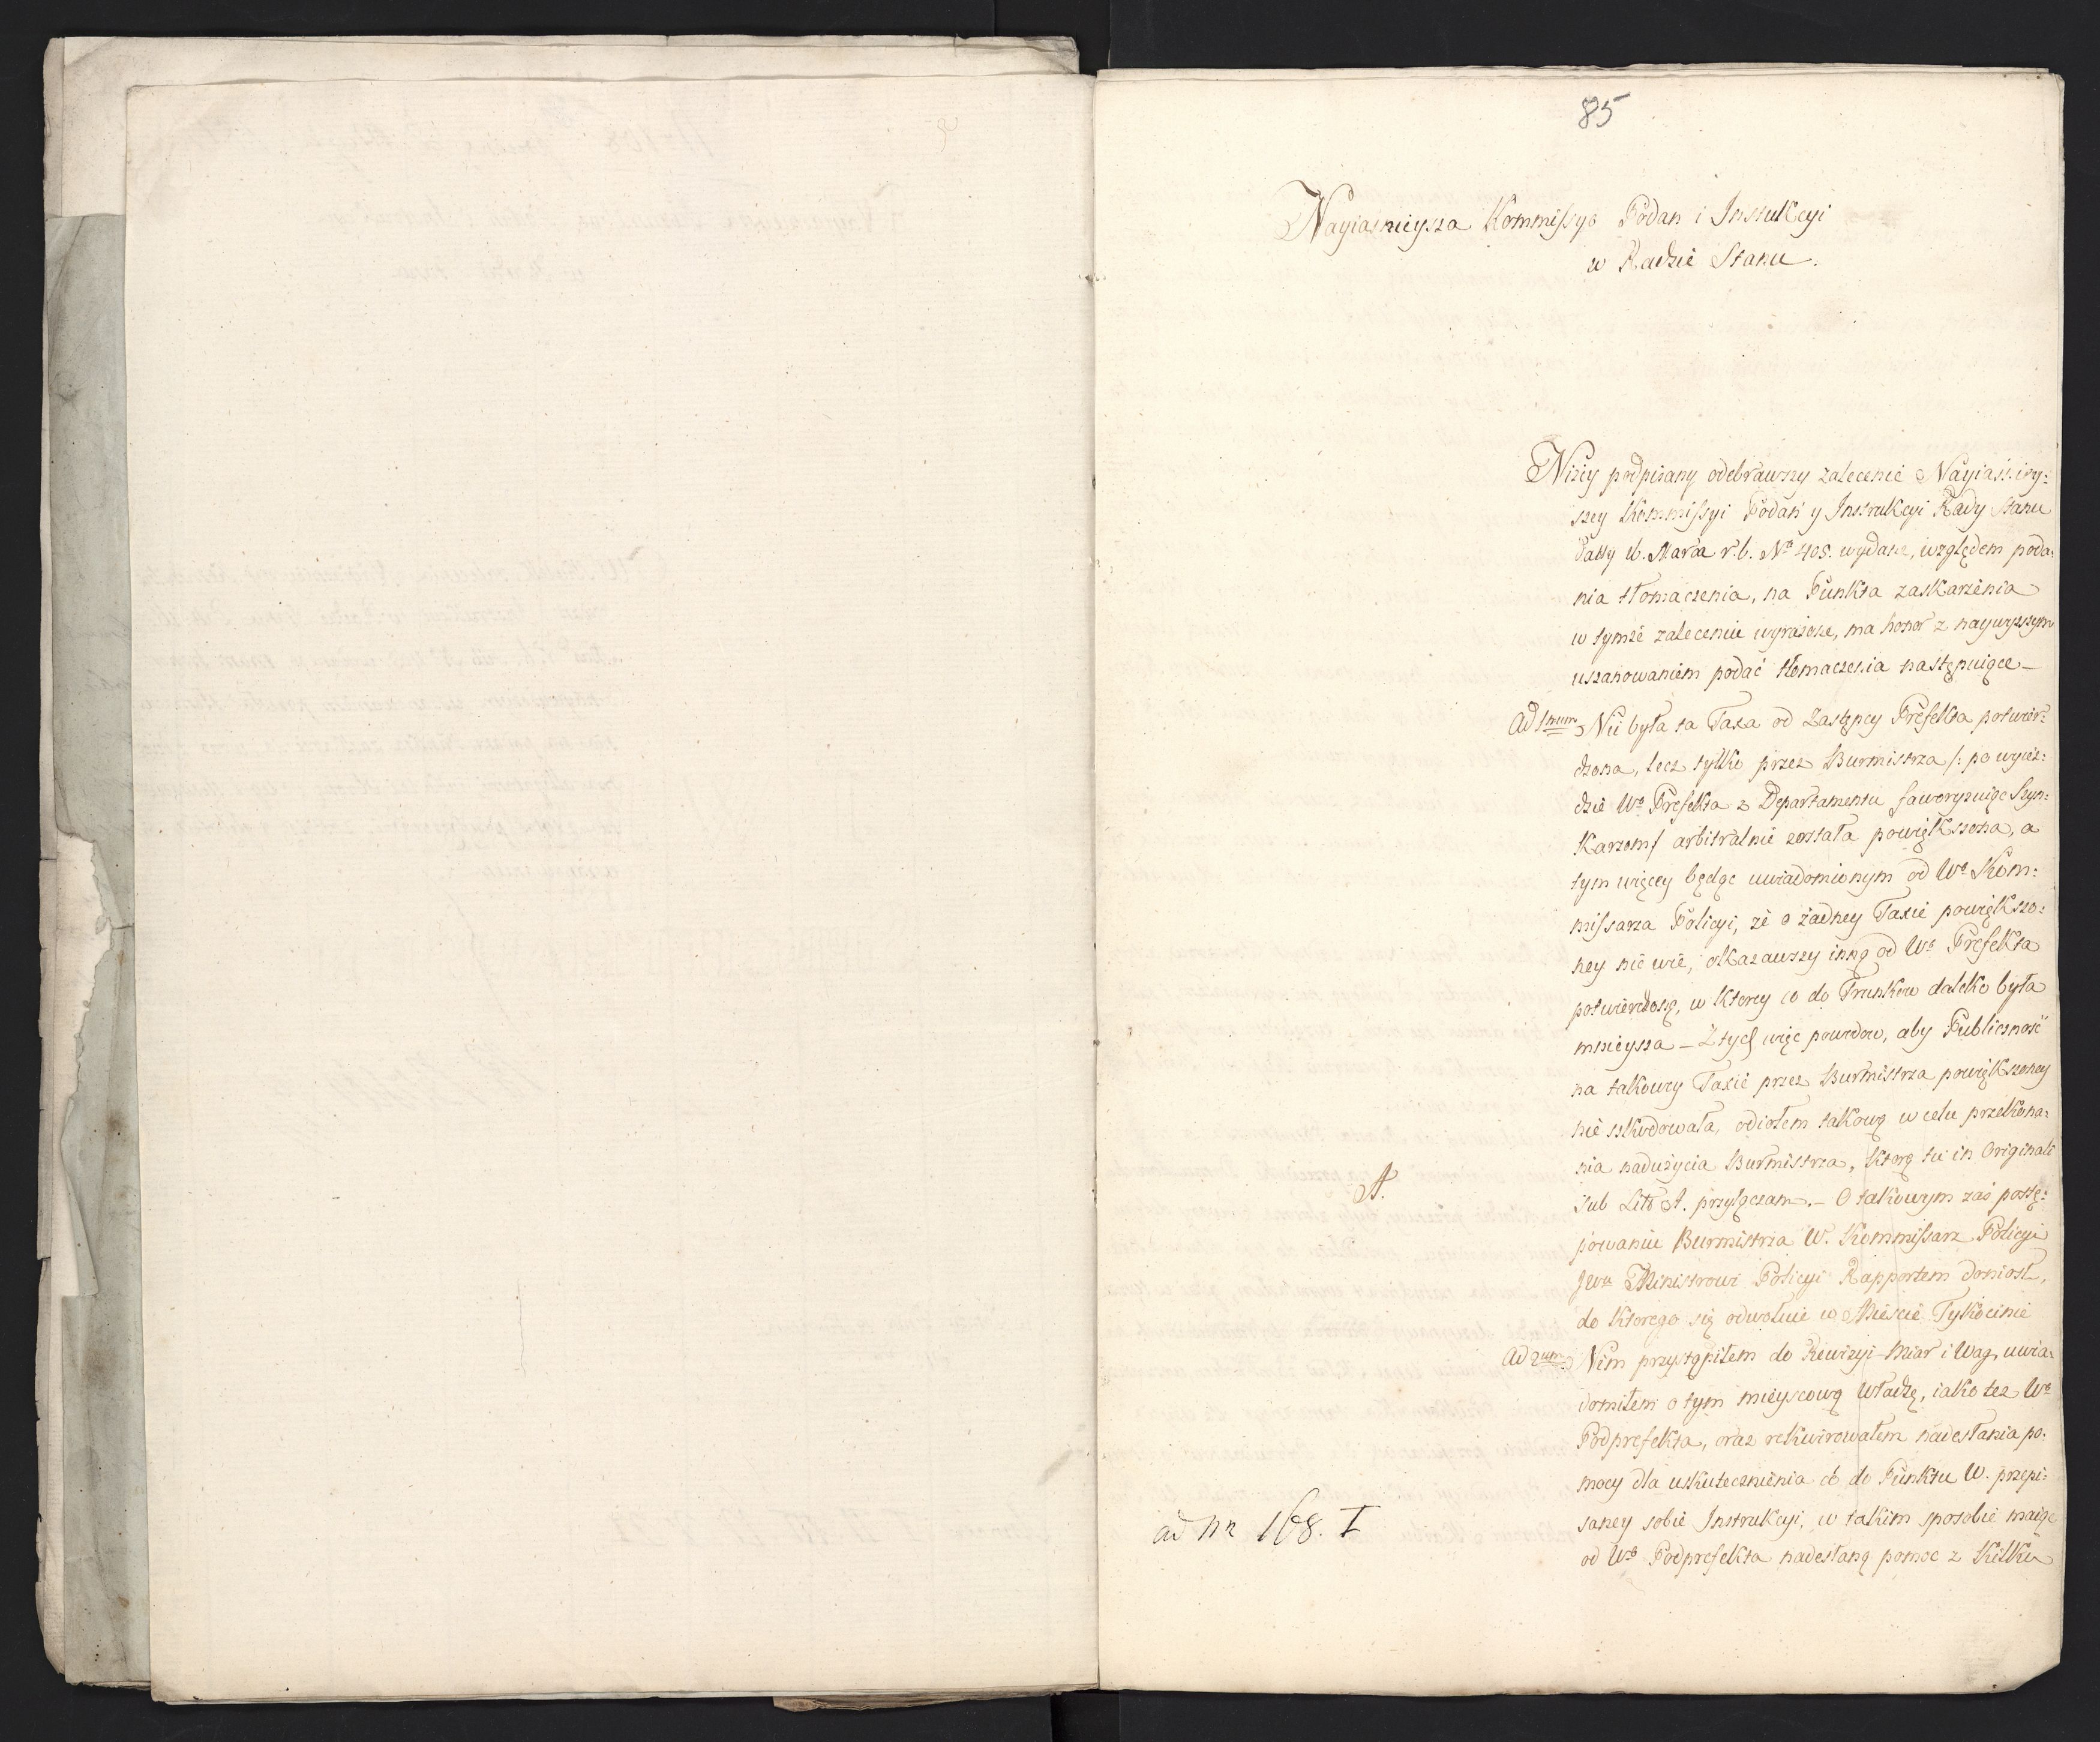 85
Nayiaśnieysza Kommissyo Podan i Instukcyi
w Radzie Stanu.
Niżey podpisany odebrawszy zalecenie Nayiaśniey:
szey Kommissyi Podań y Instrukcyi Rady Stanu
Marca r.b. No 405. wydane, względem poda:
nia tłomaczenia, na Punkta zaskarżenia
w tymże zaleceniu wyrażone, ma honor z naywyższym
uszanowaniem podać tłomaczenia następuiące —
Ad 1mum Nie była ta Taxa od Zastępcy Prefekta potwier:
dzona, lecz tylko przez Burmistrza /: po wyież:
dzie Wo Prefekta z Departamentu faworyzuiąc Szyn:
karzom/ arbitralnie została powiększona, a
tym więcey będąc uwiadomionym od Wo Kom:
missarza Policyi, że o żadney Taxie powiększo:
ney nie wie, okazawszy inną od Wo Prefekta
potwierdzoną, w ktorey co do Trunkow daleko była
mnieysza — Z tych więc powodow, aby Publiczność
na takowey Taxie przez Burmistrza powiększoney
nie szkodowała, odiołem takową w celu przekona:
nia nadużycia Burmistrza, ktorą tu in Originali
A.
sub Litt A. przyłączam. — O takowym zaś postę:
powaniu Burmistrza W. Kommissarz Policyi
JWu Ministrowi Policyi Rapportem doniosł,
do ktorego się odwołuie w Mieście Tykocinie
Ad 2um Nim przystąpiłem do Rewizyi Miar i Wag, uwia:
domiłem o tym mieyscową Władzę, iako też Wo
Podprefekta, oraz rekwirowałem nadesłania po:
mocy dla uskutecznienia co do Punktu W. przepi:
saney sobie Instrukcyi, w takim sposobie maiąc
od Wo Podprefekta nadesłaną pomoc z kilku
ad Nr 168. I